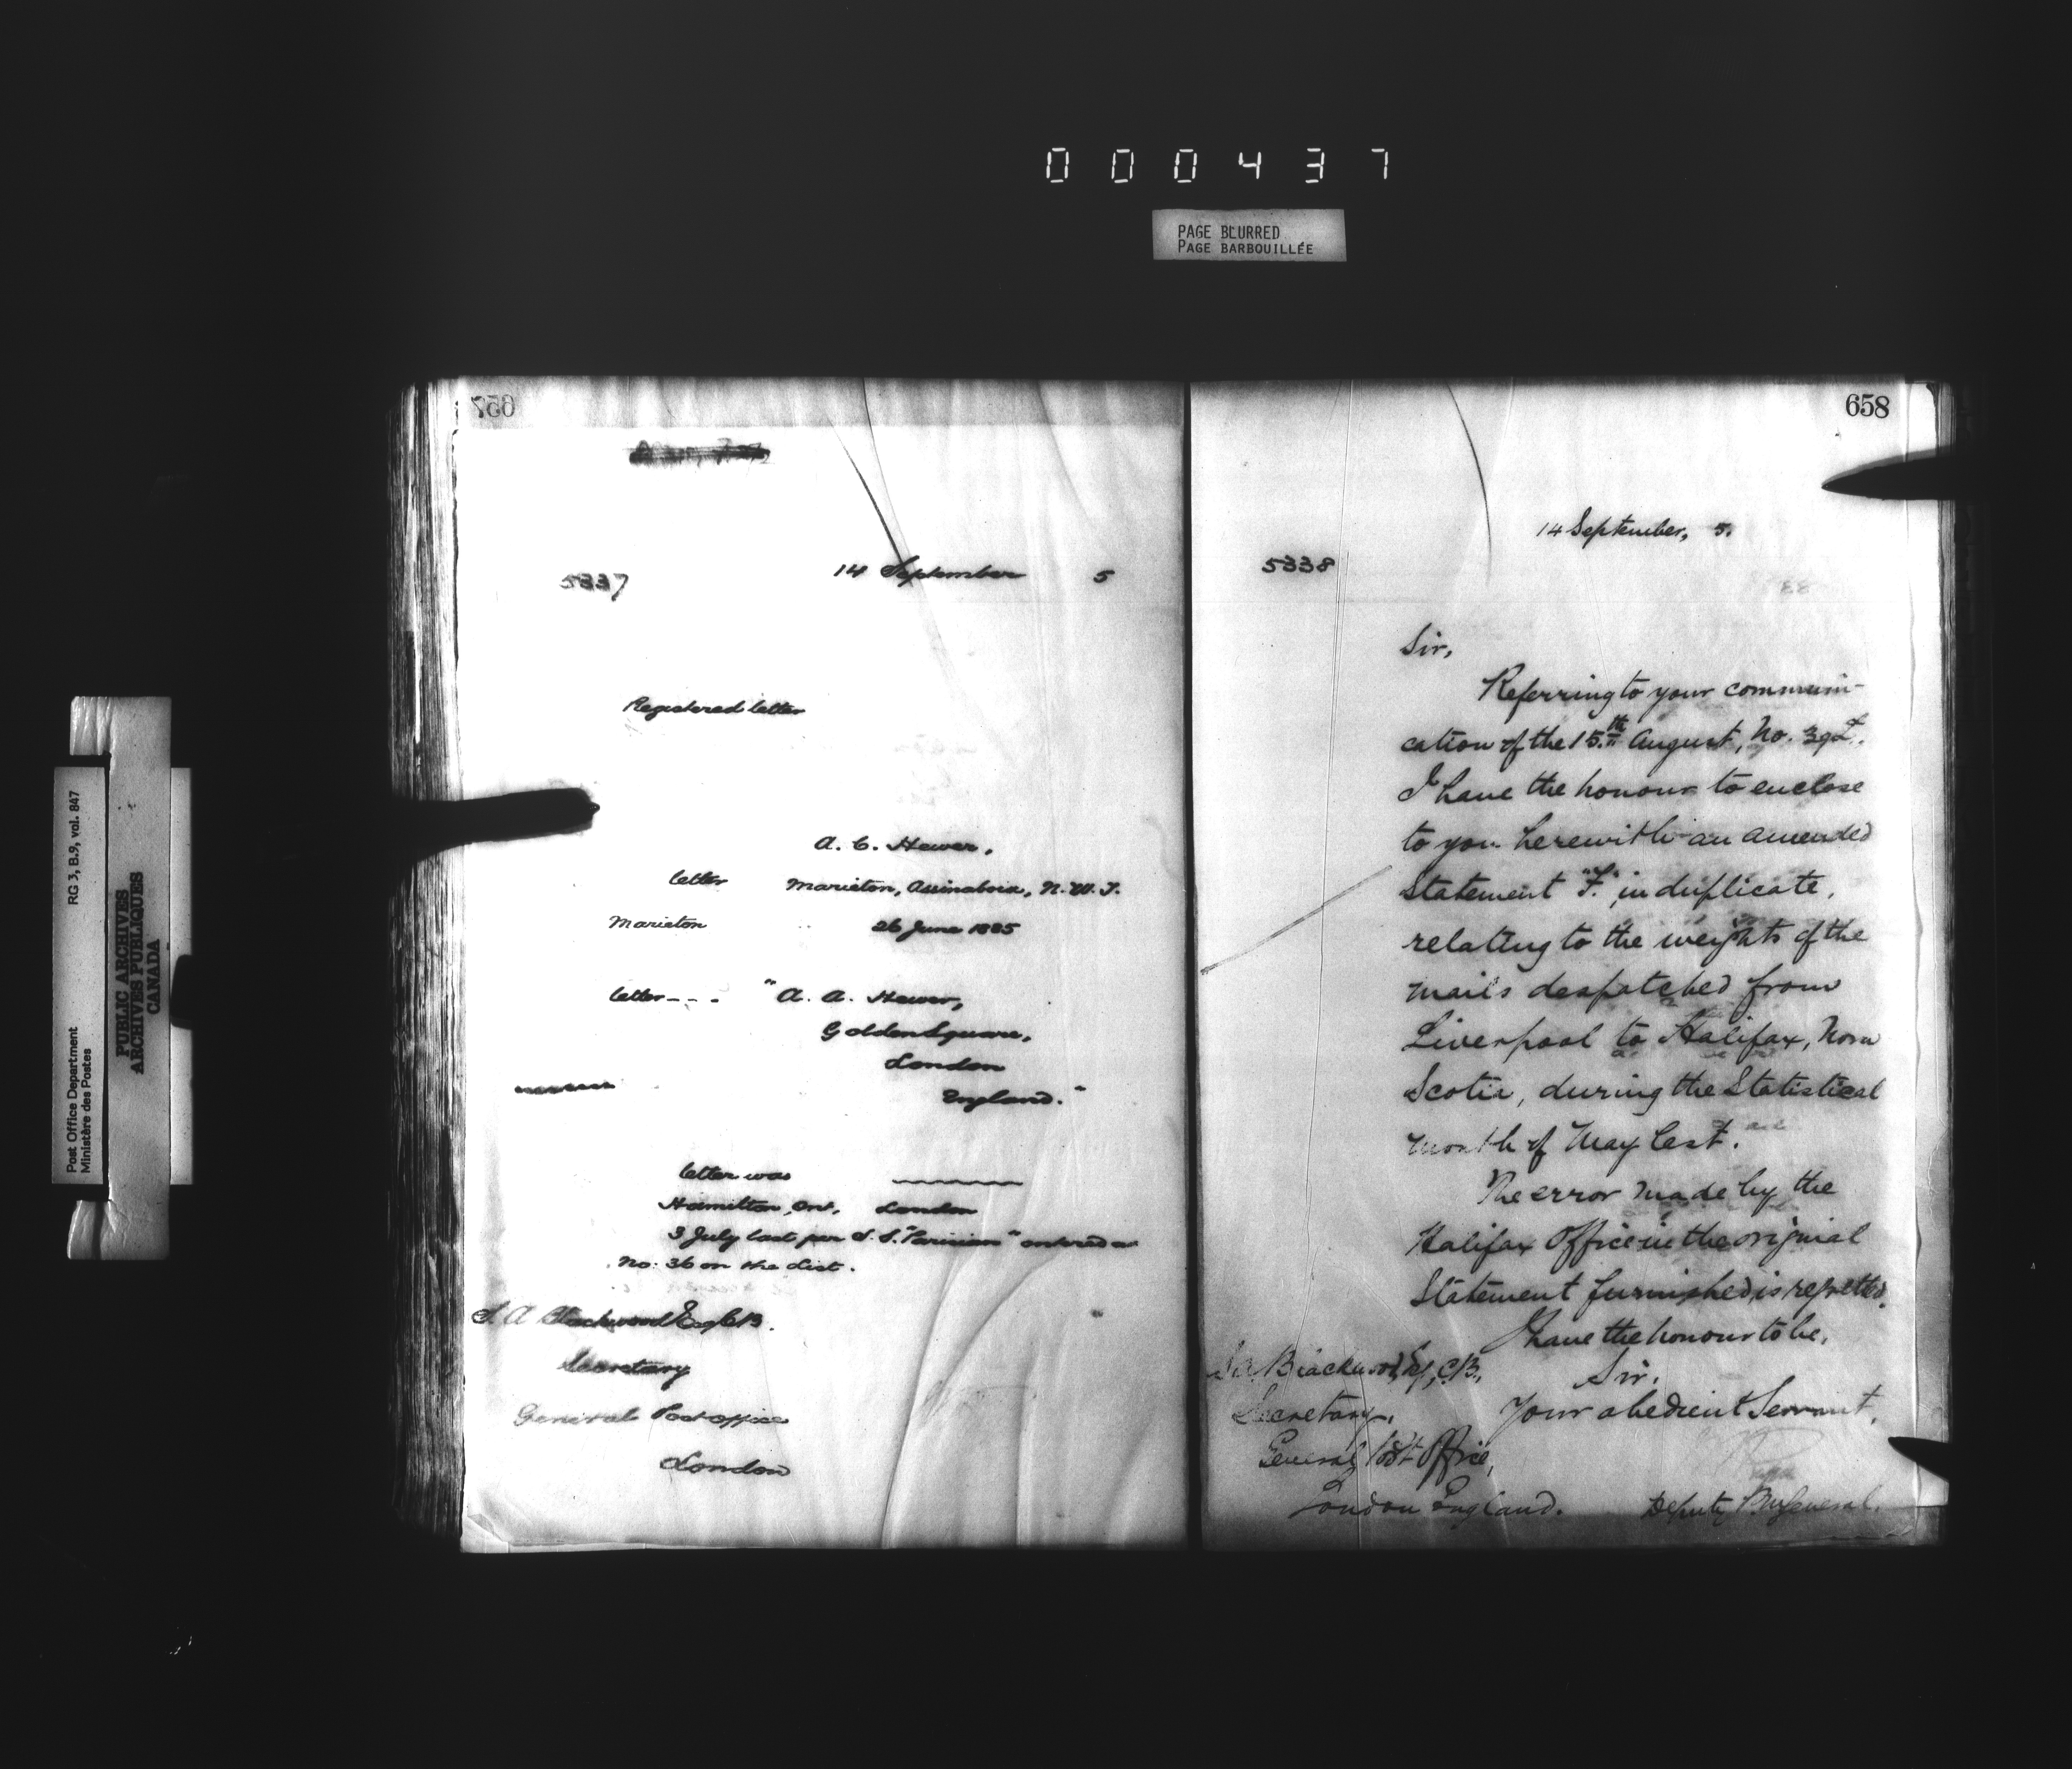 000437
PAGE BLURRED
PAGE BARBOUILLÉE
Post Office Department
Ministère des Postes
RG 3, B.9, vol. 847
PUBLIC ARCHIVES
ARCHIVES PUBLIQUES
CANADA
657
5337
14 September 5
Registered letter
A. C. Hewer,
letter Marieton, Assinaboia, N.W.T.
Marieton 26 June 1885
letter--- "A. A. Hewer,
Golden Square,
London
England."
letter was
Hamilton, Ont. London
3 July last per S.S. "Parisian" entered as
No. 36 on the List.
S. A Blackwood Esq CB.
Secretary
General Post office
London
658
14 September, 5.
5338
Sir,
Referring to your communi-
cation of the 15th August, No. 39L.
I have the honour to enclose
to you herewith an amended
statement "F." in duplicate,
relating to the weights of the
mails despatched from
Liverpool to Halifax, Nova
Scotia, during the Statistical
month of May last.
The error made by the
Halifax Office in the original
Statement furnished is regretted.
I have the honour to be,
Sir.
Your obedient Servant,
S A Blackwood, Esq, C.B.,
Secretary,
General Post Office,
London England.
Deputy P.M. General.